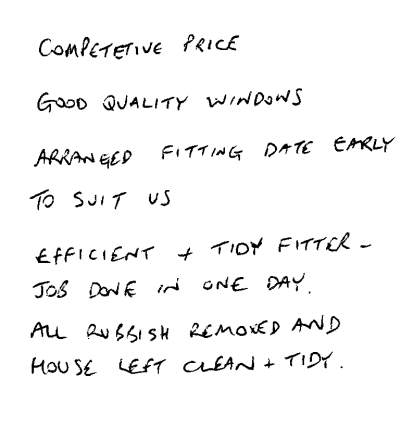 COMPETETIVE PRICE
GOOD QUALITY WINDOWS
ARRANGED FITTING DATE EARLY
TO SUIT US
EFFICIENT + TIDY FITTER -
JOB DONE IN ONE DAY.
ALL RUBBISH REMOVED AND
HOUSE LEFT CLEAN + TIDY.